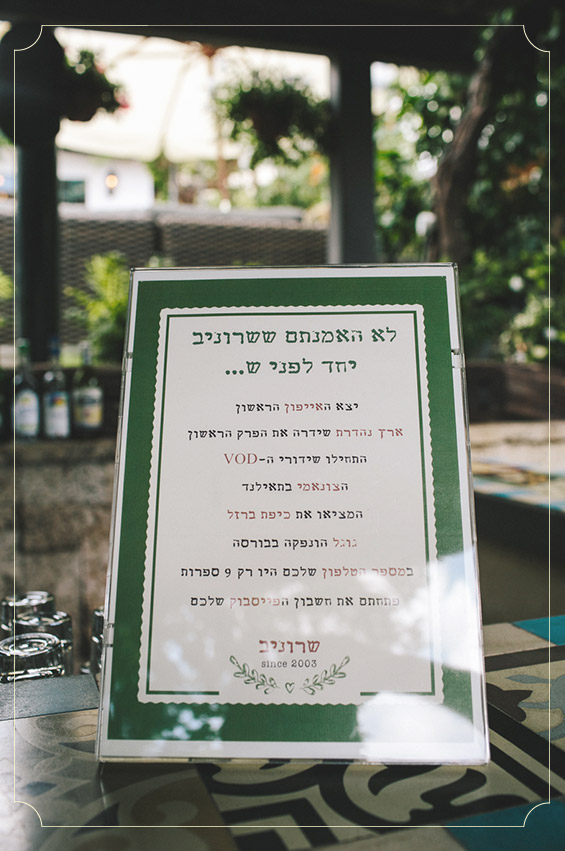 לא האמנתם ששרוניב
יחד לפני ש...
יצא האייפון הראשון
ארץ נהדרת שידרה את הפרק הראשון
התחילו שידורי ה-VOD
הצונאמי בתאילנד
המציאו את כיפת ברזל
גוגל הונפקה בבורסה
במספר הטלפון שלכם היו רק 9 ספרות
פתחתם את חשבון הפייסבוק שלכם
שרוניב
since 2003